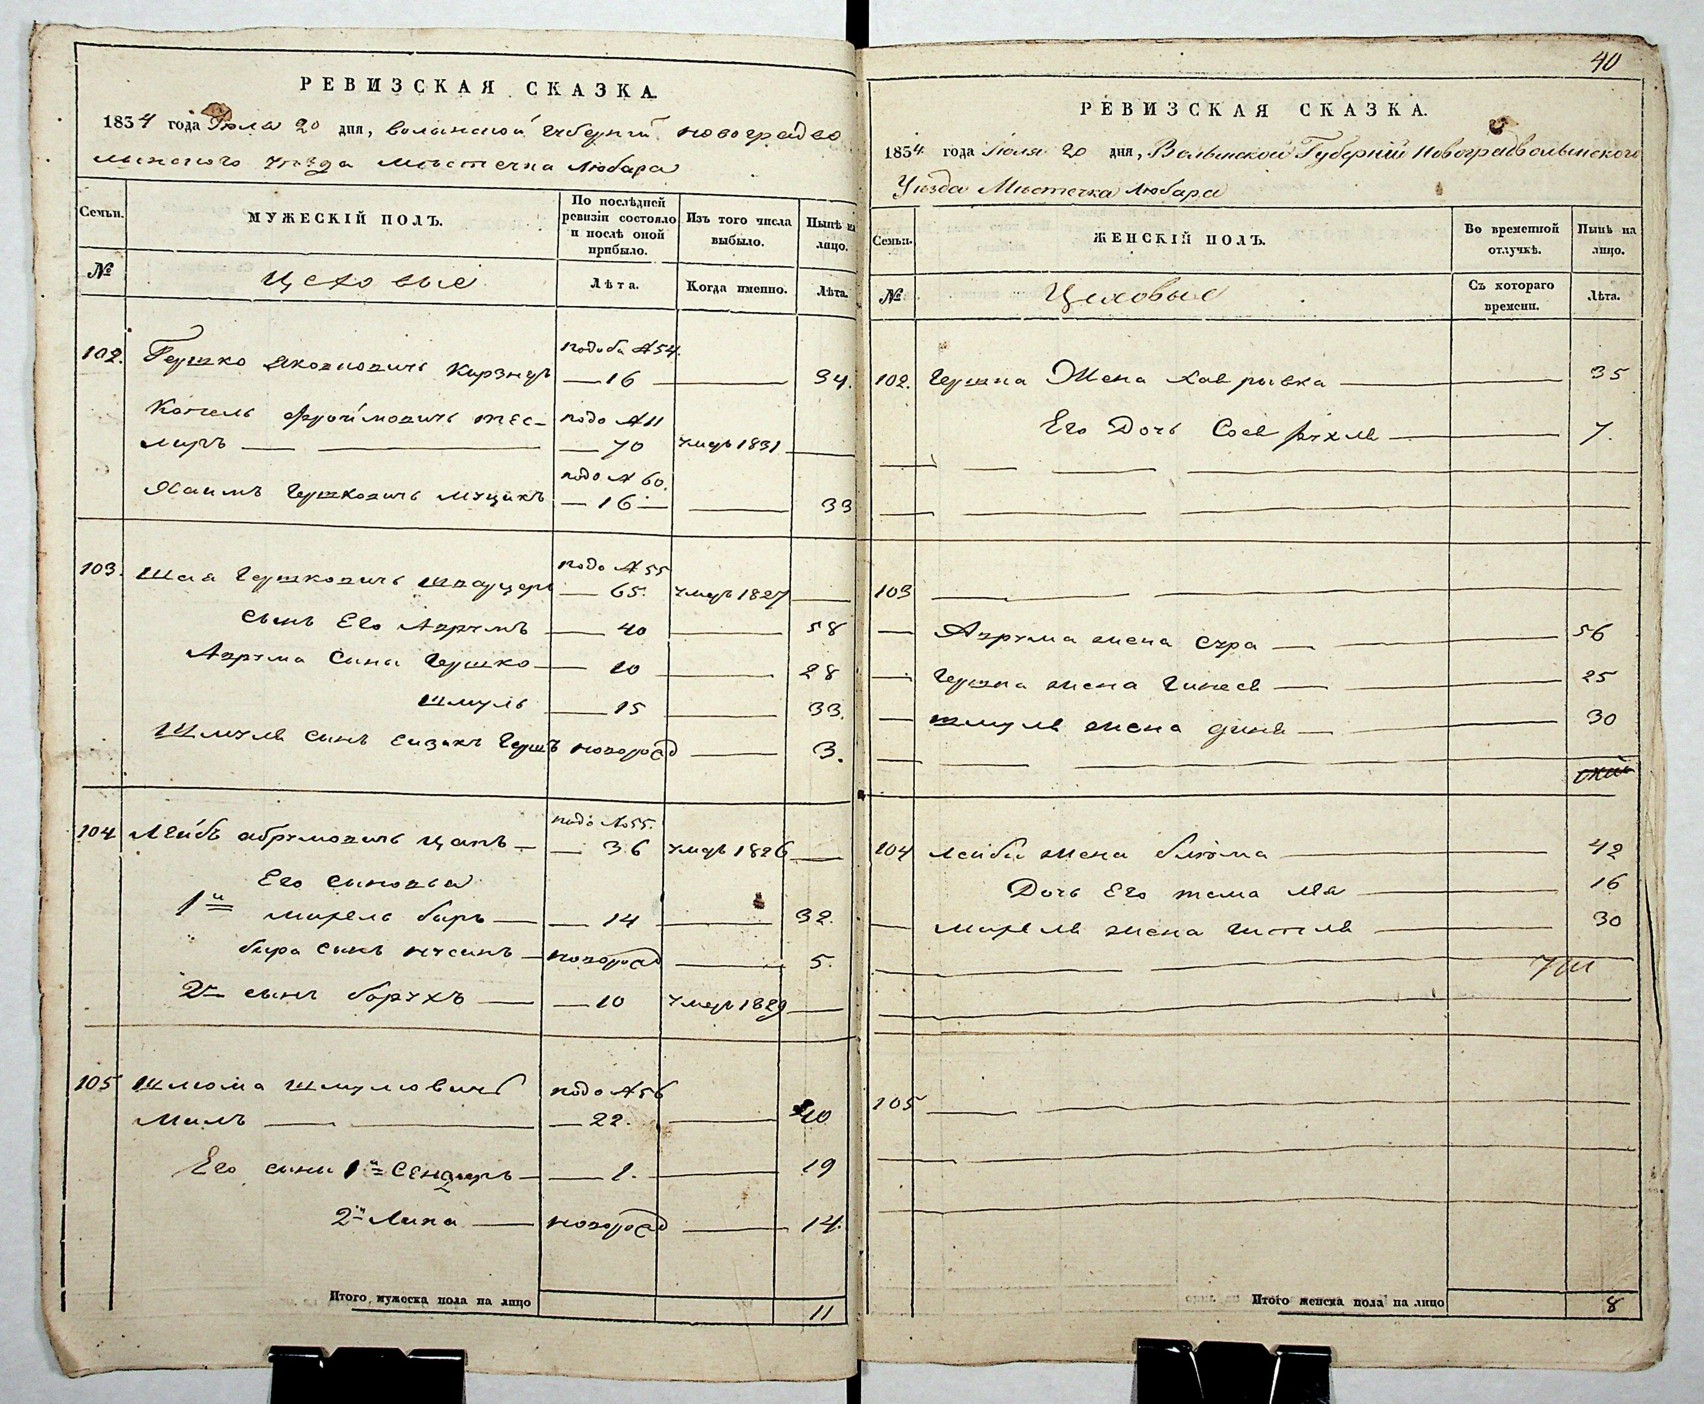 РЕВИЗСКАЯ СКАЗКА.
1834 года Июля 20 дня, волынской губерній новоградво
лынского уезда местечка Любара
Семьи.
МУЖЕСКІЙ ПОЛЪ.
По послѣдней ревизіи состояло и послѣ оной прибыло.
Изъ того числа выбыло.
Нынѣ на лицо.
№
цеховые
Лѣта.
Когда именно.
Лѣта.
102. Гершко Яковловичъ подъ № 54.
16 34.
Копель Фроймовичъ тес- подъ № 11
лиръ 70 умеръ 1831
Хаимъ Гершковичъ подъ № 60.
16 33
103. Шая Гершковичъ подъ № 55
65. умеръ 1827
сынъ Его Аврумъ 40 58
Аврума сини Гершко 10 28
шмуль 15 33.
Шмуля синъ Еизикъ Гершъ новорожд 3.
104 Лейбъ абрумовичъ цапъ подъ № 55.
36 умеръ 1826
Его синовья
1й беръ 14 32.
бера сынъ нусинъ новорожд 5.
2й сынъ борухъ 10 умеръ 1829
105 Шлиома шмулиовичъ подъ № 56
22. 40
Его сини 1й Сендеръ 1. 19
2й Липа новорожд 14.
Итого мужеска пола на лицо 11
40
РЕВИЗСКАЯ СКАЗКА.
1834 года Июля 20 дня, Волынской Губерній Новоградволынского
Уизда Мистечка Любара
Семьи.
ЖЕНСКІЙ ПОЛЪ.
Во временной отлучкѣ.
Нынѣ на лицо.
№
Цеховые
Съ котораго времени.
Лѣта.
102. Гершка Жена 35
Его Дочь Сося Рухля 7.
103
Аврума жена сура 56
Гершка жена 25
шмуля жена диня 30
104 лейби жена блюма 42
Дочь Его 16
жена гитля 30
105
Итого женска пола на лицо 8